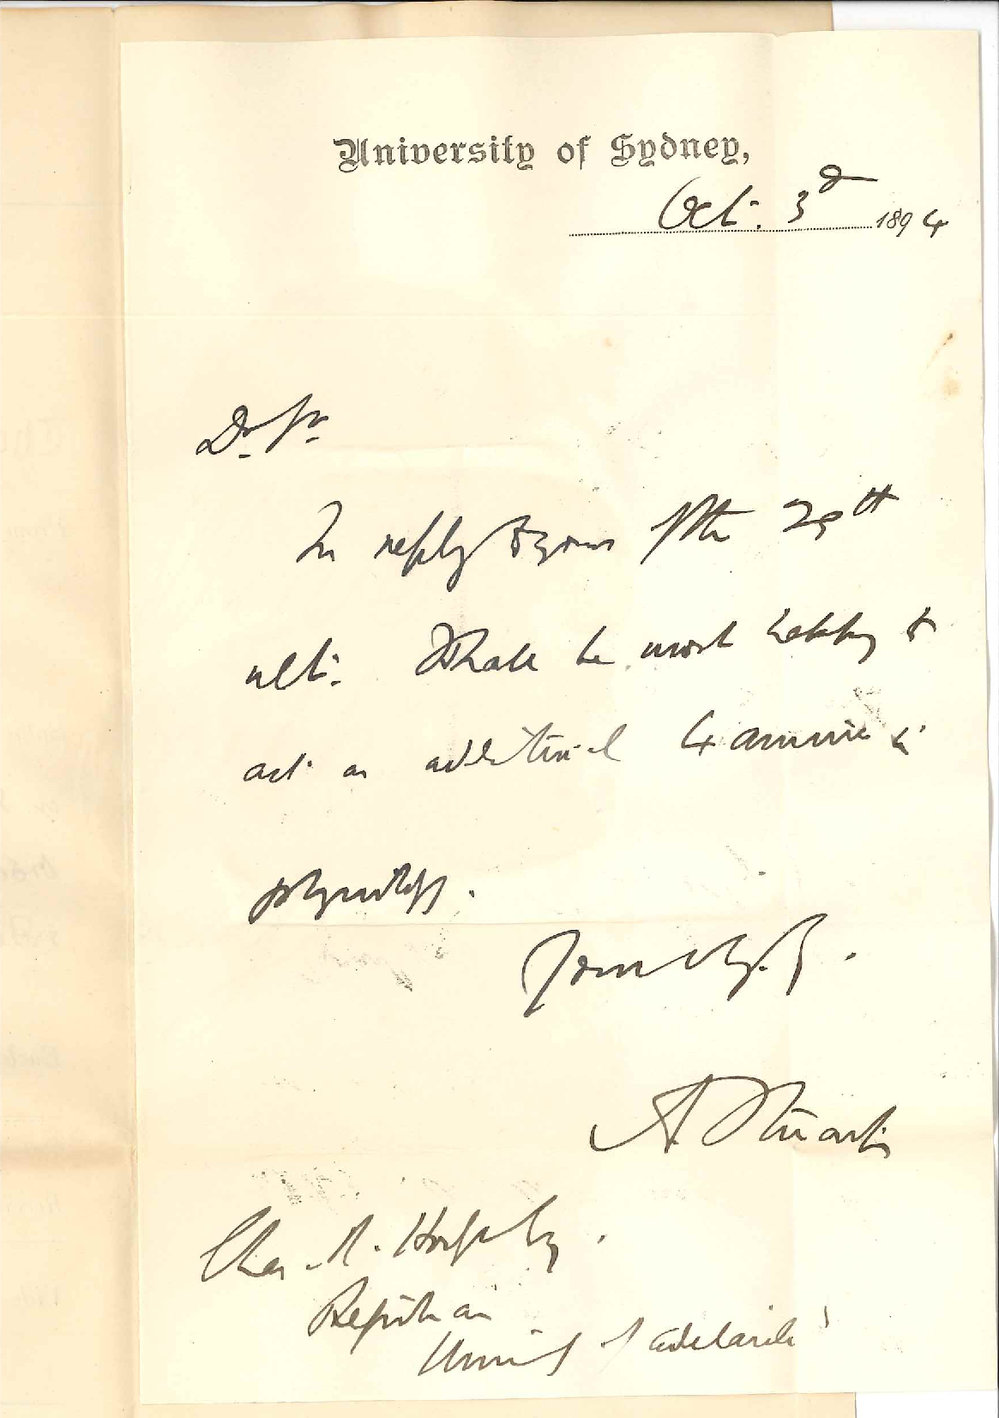 University of Sydney,
Oct. 3d 1894
Dr. Sr.
In reply to yours of the 29th
ult. I shall be most happy to
act as additional Examiner in
physiology.
Yours
A. Stuart
Chas. R. Hodge Esq.
Registrar
University of Adelaide